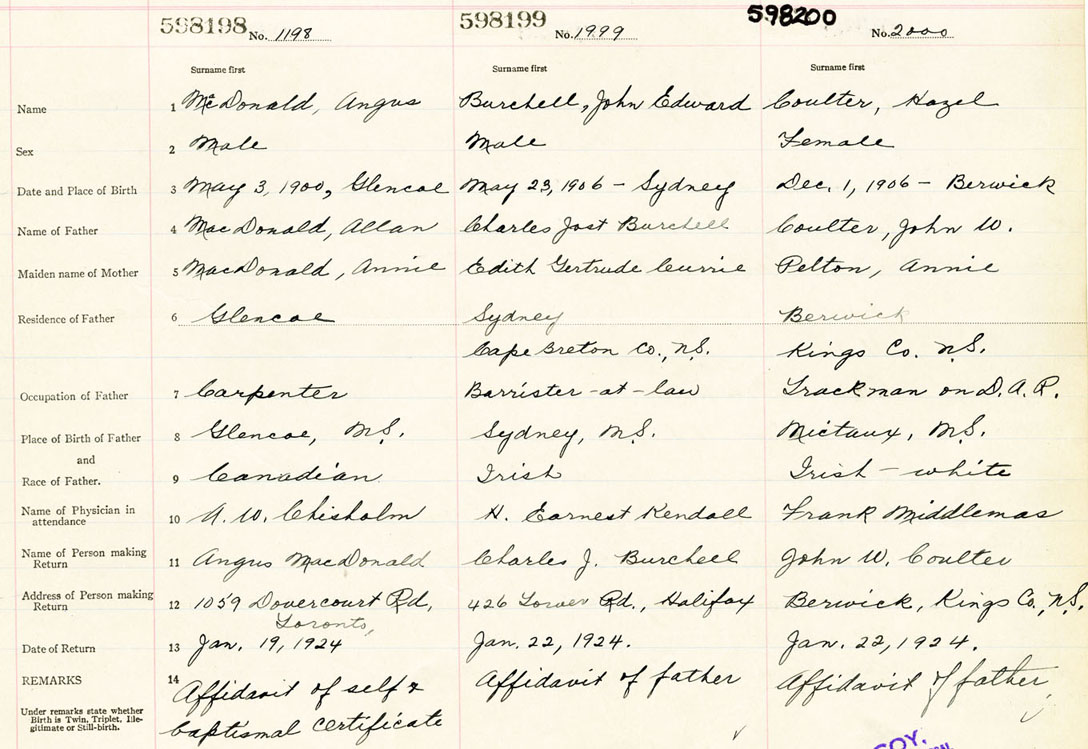 598198 No. 1198 598199 No. 1999 598200 No. 2000
Surname first Surname first Surname first
Name 1 McDonald, Angus Burchell, John Edward Coulter, Hazel
Sex 2 Male Male Female
Date and Place of Birth 3 May 3, 1900, Glencoe May 23, 1906 - Sydney Dec. 1, 1906 - Berwick
Name of Father 4 MacDonald, Allan Charles Jost Burchell Coulter, John W.
Maiden name of Mother 5 MacDonald, Annie Edith Gertrude Currie Pelton, Annie
Residence of Father 6 Glencoe Sydney Berwick
Cape Breton Co., N.S. Kings Co. N.S.
Occupation of Father 7 Carpenter Barrister-at-law Trackman on D.A.R.
Place of Birth of Father 8 Glencoe, N.S. Sydney, N.S. Nictaux, N.S.
and
Race of Father. 9 Canadian Irish Irish - white
Name of Physician in
attendance 10 A. W. Chisholm H. Earnest Kendall Frank Middlemas
Name of Person making
Return 11 Angus MacDonald Charles J. Burchell John W. Coulter
Address of Person making
Return 12 1059 Dovercourt Rd, 426 Tower Rd., Halifax Berwick, Kings Co., N.S.
Toronto,
Date of Return 13 Jan. 19, 1924 Jan. 22, 1924. Jan. 22, 1924.
REMARKS 14 Affidavit of self & Affidavit of father Affidavit of father
Under remarks state whether
Birth is Twin, Triplet, Ille-
gitimate or Still-birth.
baptismal certificate